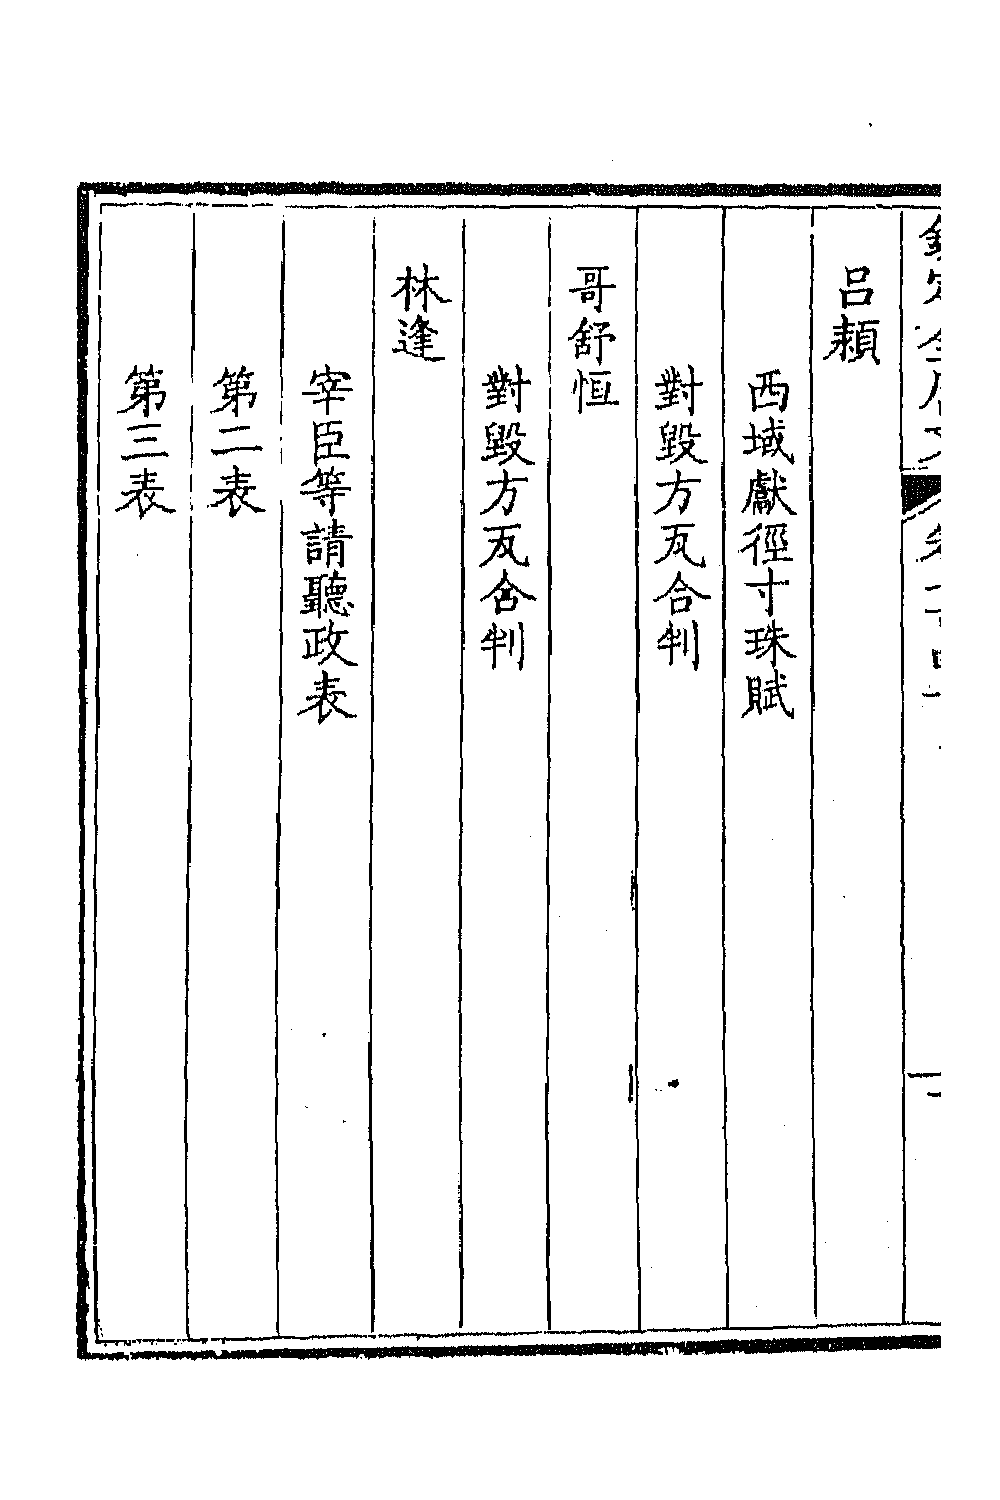 呂頛
西域獻徑寸珠賦
對毀方瓦合判
哥舒恒
對毀方瓦合判
林逢
宰臣等請聽政表
第二表
第三表